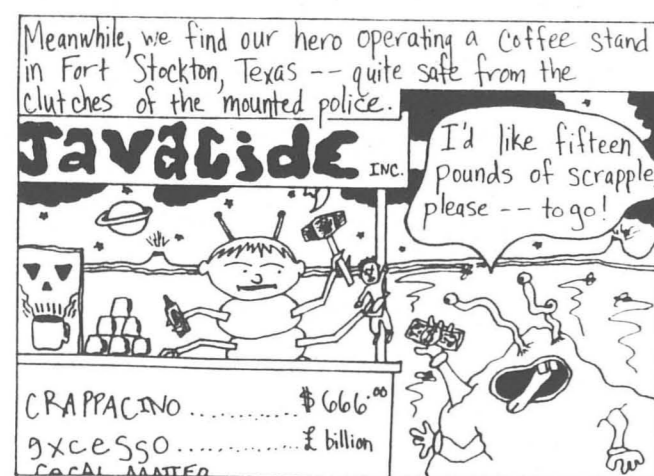 Meanwhile, we find our hero operating a coffee stand
in Fort Stockton, Texas -- quite safe from the
clutches of the mounted police.
Javacide INC.
I'd like fifteen
pounds of scrapple
please -- to go!
CRAPPACINO ............ $666.00
gxcesso ............... £ billion